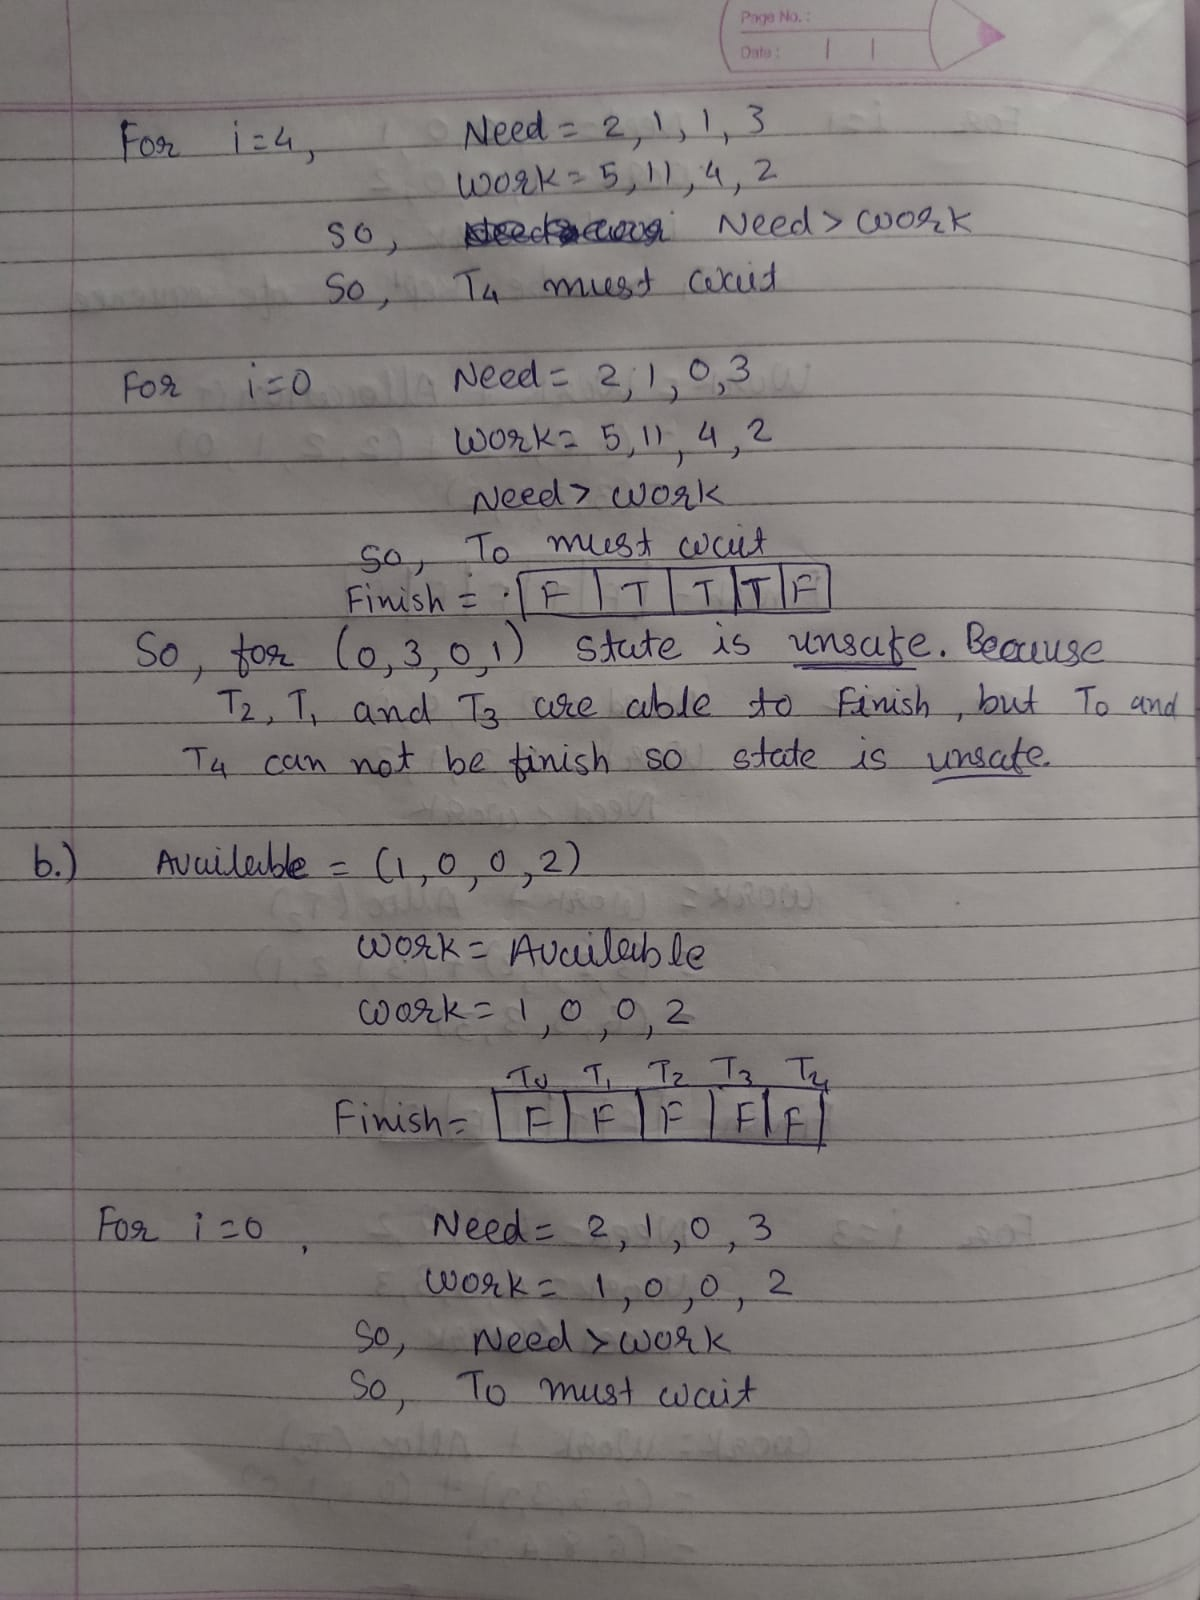 Page No.:
Date:
For i=4, Need = 2, 1, 1, 3
Work = 5, 11, 4, 2
so, Need > work
So, T4 must wait
For i=0 Need = 2, 1, 0, 3
Work = 5, 11, 4, 2
Need > work
So, To must wait
Finish = F T T T F
So, for (0, 3, 0, 1) state is unsafe. Because
T2, T1 and T3 are able to Finish, but To and
T4 can not be finish so state is unsafe.
b.) Available = (1, 0, 0, 2)
Work = Available
Work = 1, 0, 0, 2
To T1 T2 T3 T4
Finish = F F F F F
For i=0, Need = 2, 1, 0, 3
Work = 1, 0, 0, 2
So, Need > work
So, To must wait